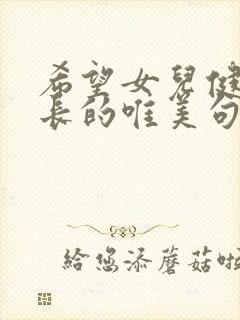 希望女兒健
長的唯美句
給您添蘑菇啦